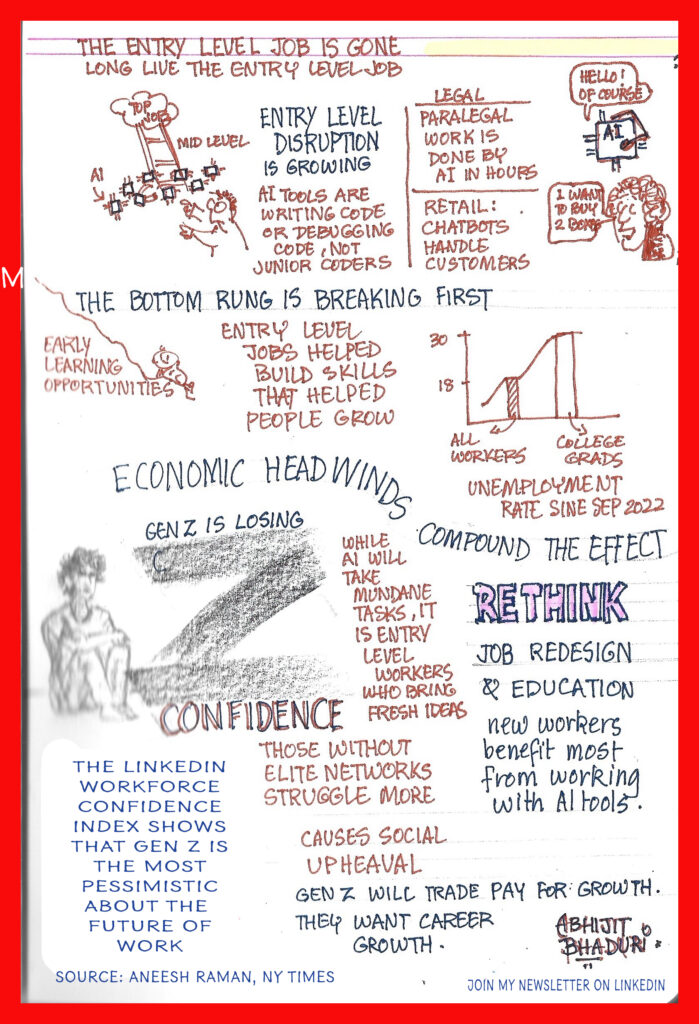 THE ENTRY LEVEL JOB IS GONE
LONG LIVE THE ENTRY LEVEL JOB
TOP
JOBS
MID LEVEL
AI
ENTRY LEVEL
DISRUPTION
IS GROWING
AI TOOLS ARE
WRITING CODE
OR DEBUGGING
CODE, NOT
JUNIOR CODERS
LEGAL
PARALEGAL
WORK IS
DONE BY
AI IN HOURS
RETAIL:
CHATBOTS
HANDLE
CUSTOMERS
HELLO!
OF COURSE
AI
I WANT
TO BUY
2
M
THE BOTTOM RUNG IS BREAKING FIRST
EARLY
LEARNING
OPPORTUNITIES
ENTRY LEVEL
JOBS HELPED
BUILD SKILLS
THAT HELPED
PEOPLE GROW
30
18
ALL
WORKERS
COLLEGE
GRADS
UNEMPLOYMENT
RATE SINE SEP 2022
ECONOMIC HEADWINDS
COMPOUND THE EFFECT
GEN Z IS LOSING
C
Z
CONFIDENCE
WHILE
AI WILL
TAKE
MUNDANE
TASKS, IT
IS ENTRY
LEVEL
WORKERS
WHO BRING
FRESH IDEAS
RETHINK
JOB REDESIGN
& EDUCATION
new workers
benefit most
from working
with AI tools.
THOSE WITHOUT
ELITE NETWORKS
STRUGGLE MORE
CAUSES SOCIAL
UPHEAVAL
THE LINKEDIN
WORKFORCE
CONFIDENCE
INDEX SHOWS
THAT GEN Z IS
THE MOST
PESSIMISTIC
ABOUT THE
FUTURE OF
WORK
GEN Z WILL TRADE PAY FOR GROWTH.
THEY WANT CAREER
GROWTH.
ABHIJIT
BHADURI
SOURCE: ANEESH RAMAN, NY TIMES
JOIN MY NEWSLETTER ON LINKEDIN